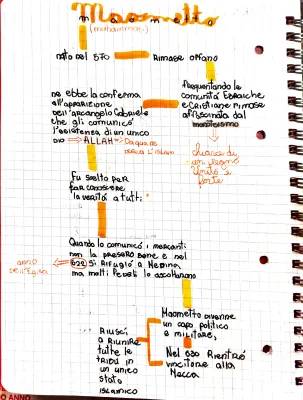 Maometto
maometto
(muhammad)
nato nel 570
Rimase orfano
frequentando le
comunità Ebraiche
e Cristiane rimase
affascinato dal
monoteismo
ne ebbe la conferma
all'apparizione
dell'arcangelo Gabriele
che gli comunicò
l'esistenza di un unico
DIO → ALLAH → Da qua nasce
l'Islam
fu scelto per
far conoscere
la verità a tutti
Quando lo comunicò i mercanti
non la presero bene e nel
622 si rifugiò a Medina
ma molti fedeli lo ascoltarono
anno
dell'Egira
Maometto divenne
un capo politico
e militare,
Nel 630 Rientrò
vincitore alla
Mecca
Riuscì
a riunire
tutte le
tribù in
un unico
stato
islamico
ANNO